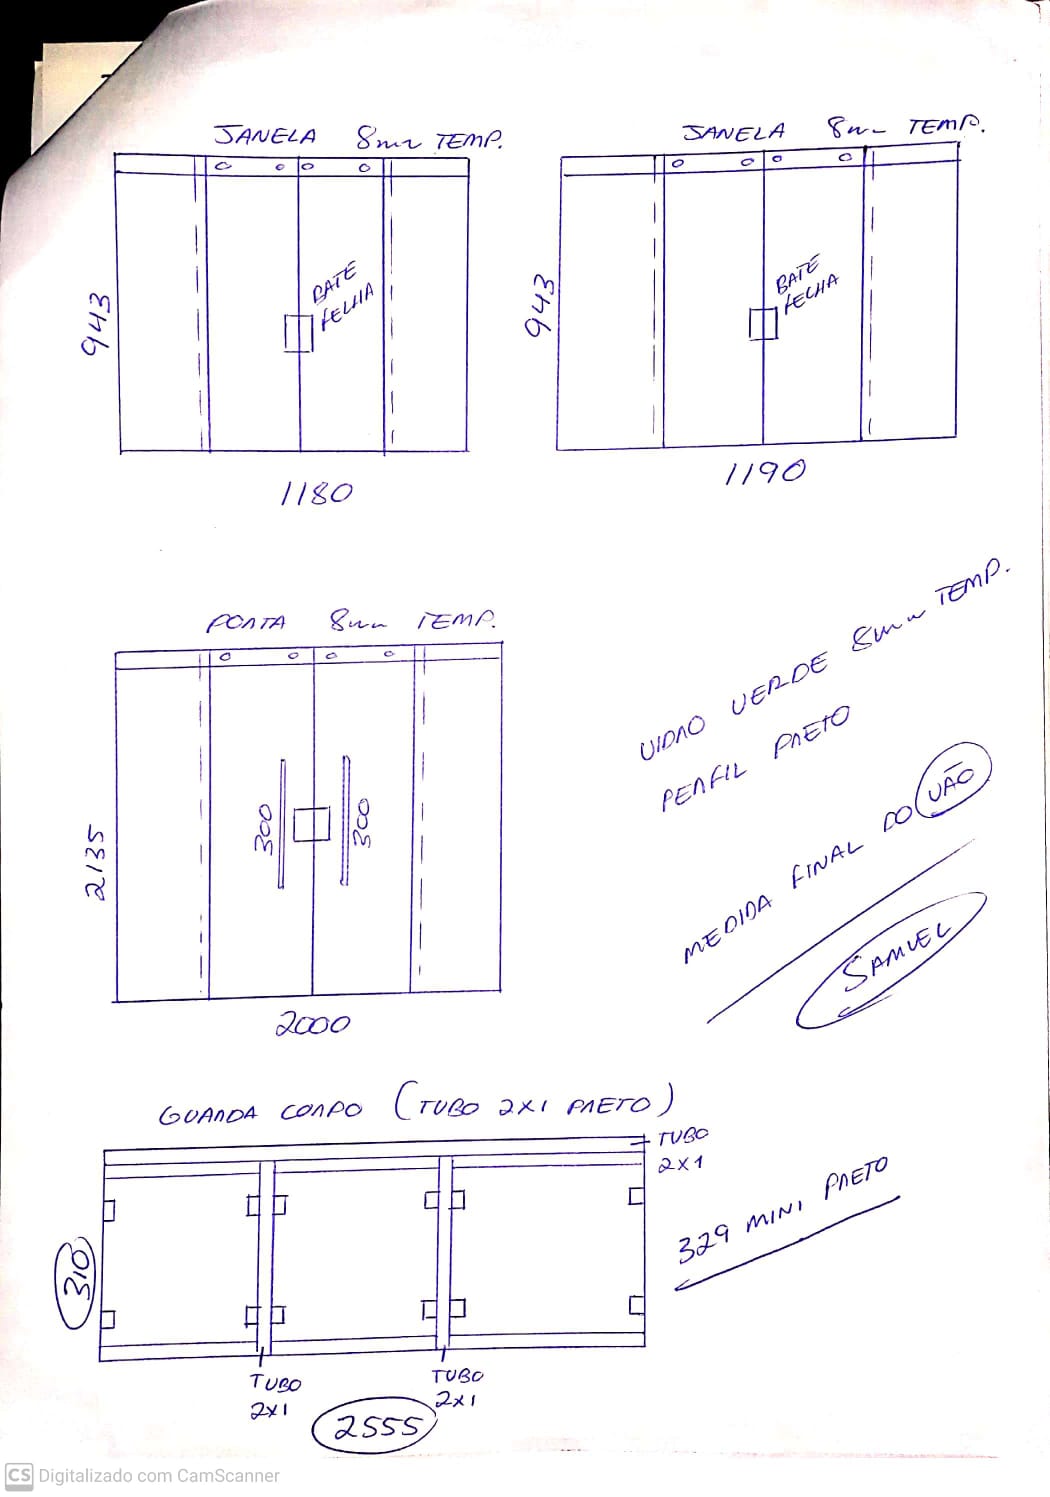 JANELA 8mm TEMP.
943
BATE
FECHA
1180
JANELA 8mm TEMP.
943
BATE
FECHA
1190
PORTA 8mm TEMP.
2135
300
300
2000
VIDRO VERDE 8mm TEMP.
PERFIL PRETO
MEDIDA FINAL DO VÃO
SAMUEL
GUARDA CORPO (TUBO 2X1 PRETO)
TUBO
2X1
310
329 MINI PRETO
TUBO
2X1
TUBO
2X1
2555
CS Digitalizado com CamScanner